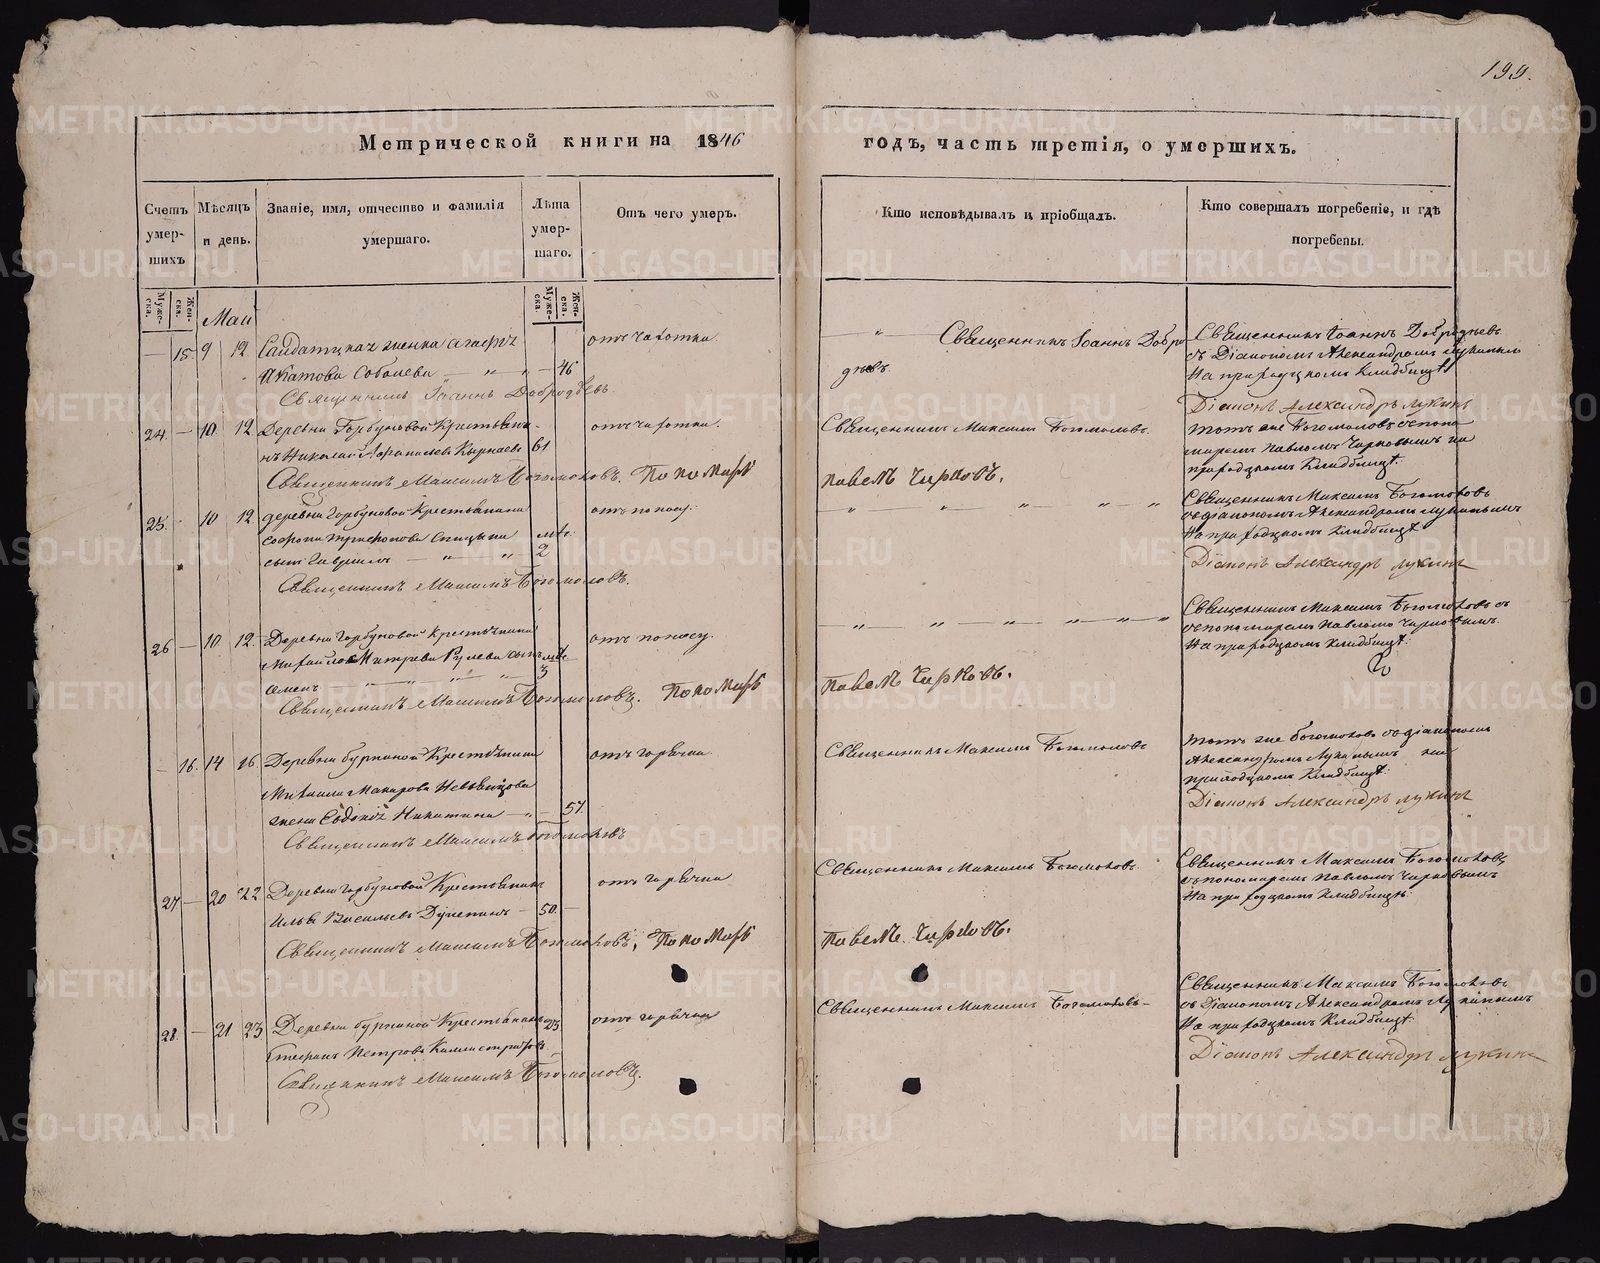 199.
Метрической книги на 1846
годъ, часть третія, о умершихъ.
Счетъ умер-шихъ
Мѣсяцъ и день.
Званіе, имя, отчество и фамилія умершаго.
Лѣта умер-шаго.
Отъ чего умеръ.
Кто исповѣдывалъ и пріобщалъ.
Кто совершалъ погребеніе, и гдѣ погребены.
Муже-ска.
Жен-ска.
Муже-ска.
Жен-ска.
Маи
15 9 12 Салдатская женка Агафія
Соболева 46
отъ чахотки
Священникъ Іоаннъ Добро
дѣевъ
Священникъ Іоаннъ Добродѣевъ
съ Діакономъ Александромъ Лукинымъ
На приходскомъ Кладбищѣ
Священникъ Іоаннъ Добродѣевъ
Діаконъ Александръ Лукинъ
24 10 12 Деревни Горбуновой Крестьяни-
нъ Николай 61
отъ чахотки.
Священникъ Максимъ Богомоловъ
тотъ же Богомоловъ съ поно
маремъ Павломъ Чирковымъ на
приходскомъ Кладбищѣ.
Священникъ Максимъ Богомоловъ. Пономарь
Павелъ Чирковъ.
25 10 12 деревни Горбуновой Крестьянина
Трифонова
сынъ Гавріилъ 2
отъ поносу.
Священникъ Максимъ Богомоловъ
съ діакономъ Александромъ Лукинымъ
На приходскомъ Кладбищѣ
Діаконъ Александръ Лукинъ
Священникъ Максимъ Богомоловъ.
26 10 12. Деревни Горбуновой Крестьянина
Михайла Митрева сынъ
Семенъ 3
отъ поносу.
Священникъ Максимъ Богомоловъ
съ пономаремъ Павломъ Чирковымъ.
На приходскомъ Кладбищѣ.
Священникъ Максимъ Богомоловъ. Пономарь
Павелъ Чирковъ.
16. 14 16 Деревни Крестьянина
Михаила Макарова
жена Евдокія Никитина 57.
отъ горячки
Священникъ Максимъ Богомоловъ
тотъ же Богомоловъ съ діакономъ
Александромъ Лукинымъ на
приходскомъ Кладбищѣ.
Діаконъ Александръ Лукинъ
Священникъ Максимъ Богомоловъ
27 20 22 Деревни Горбуновой Крестьянинъ
Илья Васильевъ 50.
отъ горячки
Священникъ Максимъ Богомоловъ
Священникъ Максимъ Богомоловъ
съ пономаремъ Павломъ Чирковымъ
На приходскомъ Кладбищѣ.
Священникъ Максимъ Богомоловъ, Пономарь
Павелъ Чирковъ.
28. 21 23 Деревни Крестьянинъ
Стефанъ Петровъ
отъ горячки
Священникъ Максимъ Богомоловъ
Священникъ Максимъ Богомоловъ
съ Діакономъ Александромъ Лукинымъ
На приходскомъ Кладбищѣ.
Діаконъ Александръ Лукинъ
Священникъ Максимъ Богомоловъ.
METRIKI.GASO-URAL.RU